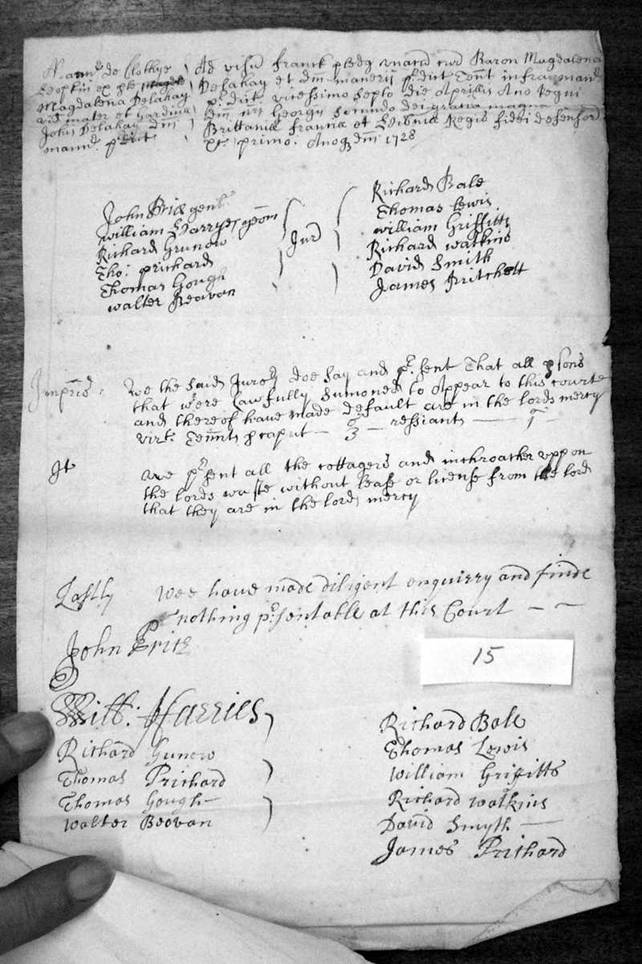 Mann^d de Clothye
Ad visu franck pledg
Baron Magdalena
Magdalena Delahay
Delahay et dm manerij p^rdict tent infra mann^d
vid mater et gardian
p^rdict vicessimo septo die Aprillis Ano regni
John Delahay dm
Dm nri Georgij Secundi dei gratia magna
mann^d p^rdict
Brittanie francie et Hibnie Regis fidei defensor
&c primo. Anoq dm 1728
John Bridgent
William Harryes
Richard Grunow
Tho: prichard
Thomas Gough
Walter Beavan
Jur^d
Richard Bale
Thomas Lewis
William Griffitts
Richard Watkins
David Smith
James Pritchett
Jmpris:
We the said Jurers doe say and p^rsent That all psons
that were Lawfully Sumoned to Appear to this Courte
and thereof have made default are in the lords mercy
virt tennts p caput — 3^d — ressiants — 1^d
Jt
We p^rsent all the cottagers and inchroacher uppon
the lords waste without Lease or license from the lord
that they are in the lords mercy
Lastly
Wee have made diligent enquiery and finde
nothing p^rsentable at this Court — —
John Brit
15
Will: Harries
Richard Gunow
Thomas Prichard
Thomas Gough
Walter Beavan
Richard Bale
Thomas Lewis
William Griffitts
Richard Watkins
David Smyth —
James Prichard